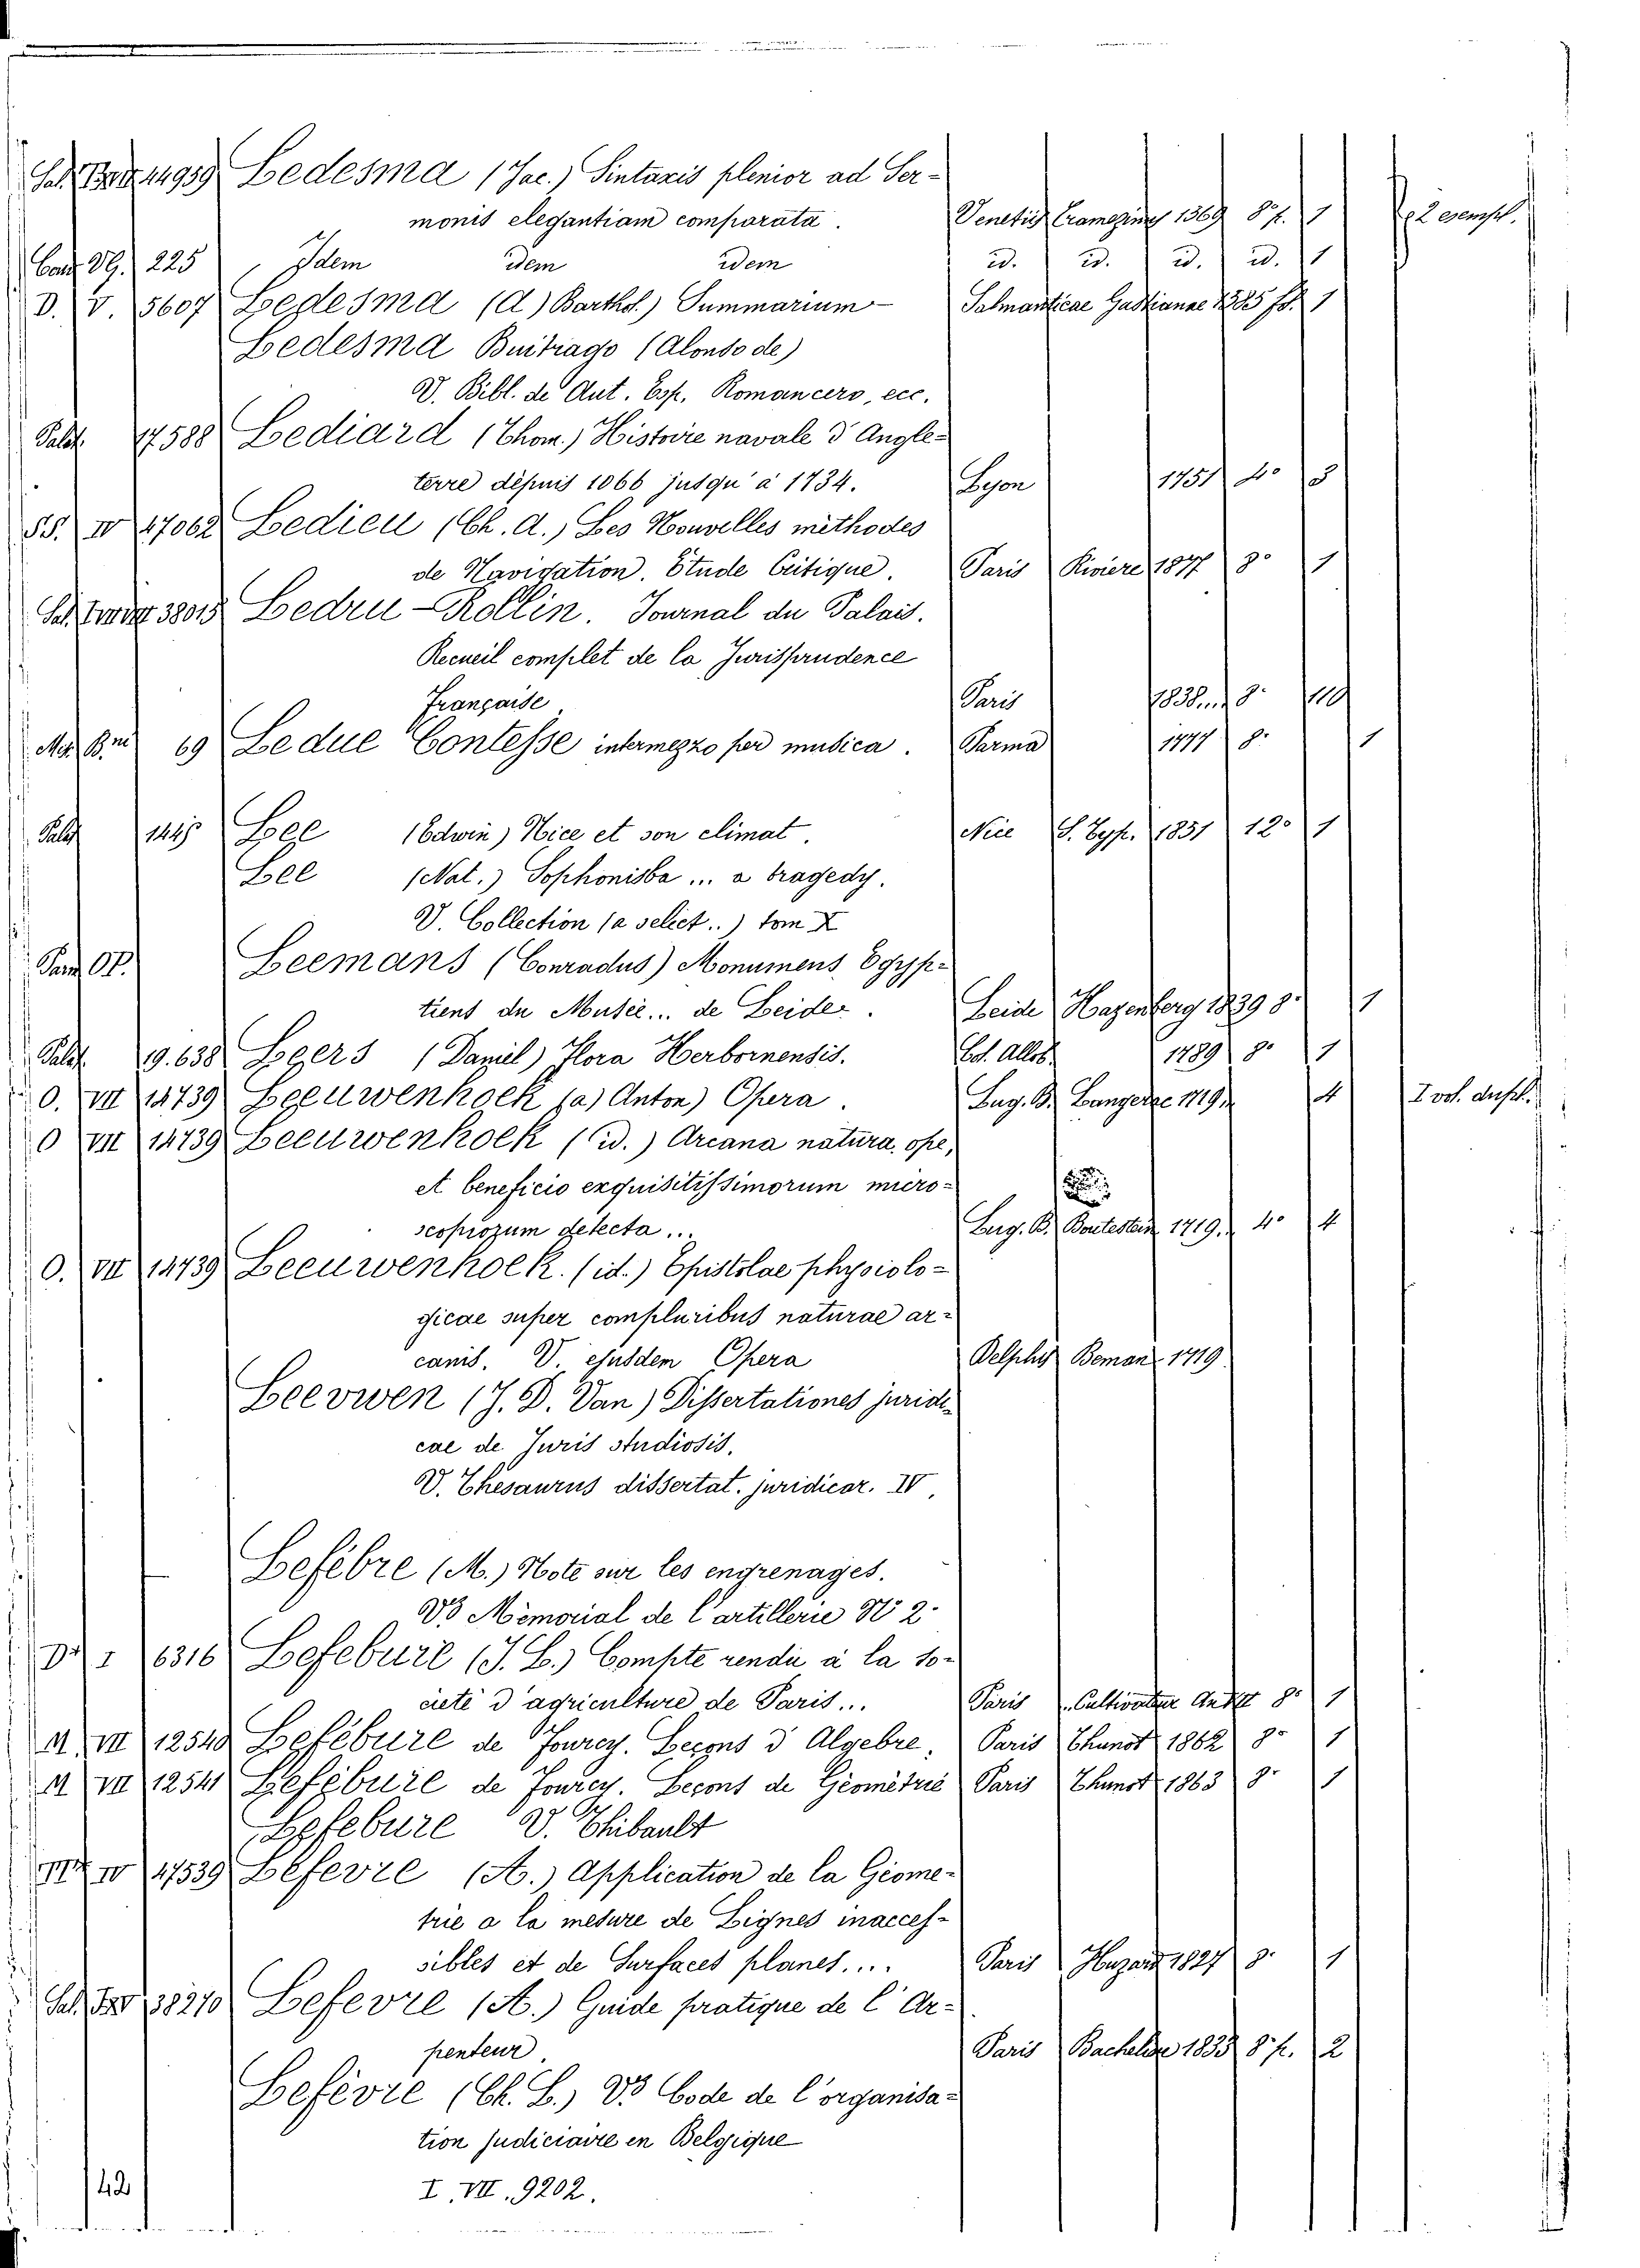 14939 Ledesma (Jac.) Sintaxis plenior ad Ser-
monis elegantiam comparata. Venetiis 1569 8° p. 1 2 esempl.
225 Idem idem idem id. id. id. id. 1
D. V. 5607 Ledesma (A) Barthol.) Summarium — Salmanticae Gastianae 1585 fo. 1
Ledesma Buitrago (Alonso de)
V. Bibl. de Aut. Esp. Romancero, ecc.
Palat. 17588 Lediard (Thom.) Histoire navale d'Angle-
terre depuis 1066 jusqu'à 1734. Lyon 1751 4° 3
SS. IV 47062 Ledieu (Ch. A.) Les Nouvelles méthodes
de Navigation. Étude Critique. Paris Riviere 1877 8° 1
38015 Ledru-Rollin. Journal du Palais.
Recueil complet de la Jurisprudence
Française. Paris 1838... 8° 110
69 Le due Contesse intermezzo per musica. Parma 1777 8° 1
Palat. 1445 Lee (Edwin) Nice et son climat. Nice S. Typ. 1851 12° 1
Lee (Nat.) Sophonisba ... a tragedy.
V. Collection (a select..) tom X
Leemans (Conradus) Monumens Egyp-
tiens du Musée... de Leide. Leide Hazenberg 1839 8° 1
Palat. 19.638 Leers (Daniel) Flora Herbornensis. Col. Allob. 1789 8° 1
O. VII 14739 Leeuwenhoek (a) Anton) Opera. Lug. B. Langerac 1719. 4 I vol. dupl.
O VII 14739 Leeuwenhoek (id.) Arcana natura, ope,
et beneficio exquisitissimorum micro-
scopiorum detecta... Lug. B. Boutestein 1719. 4° 4
O. VII 14739 Leeuwenhoek. (id.) Epistolae physiolo-
gicae super compluribus naturae ar-
canis. V. ejusdem Opera Delphis Beman 1719.
Leevwen (J. D. Van) Dissertationes juridi-
cae de Juris studiosis.
V. Thesaurus dissertat. juridicar. IV.
Lefèbre (M.) Note sur les engrenages.
V° Mémorial de l'artillerie N° 2.
I 6316 Lefebure (J. L.) Compte rendu à la so-
cieté d'agriculture de Paris... Paris Cultivateur 8° 1
M. VII 12540 Lefébure de Fourcy. Leçons d'Algebre. Paris Thunot 1862 8° 1
M VII 12541 Lefébure de Fourcy. Leçons de Géométrie Paris Thunot 1863 8° 1
Lefebure V. Thibault
IV 47539 Lefevre (A.) Application de la Géome-
trie a la mesure de Lignes inacces-
sibles et de Surfaces planes.... Paris Huzard 1827 8° 1
38270 Lefevre (A.) Guide pratique de l'Ar-
penteur. Paris Bachelier 1833 8° p. 2
Lefèvre (Ch. L.) V° Code de l'organisa-
tion judiciaire en Belgique
I. VII. 9202.
42